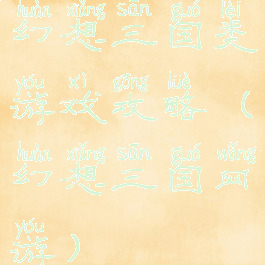 huàn xiǎng sān guó lèi
幻想三国类
yóu xì gōng lüè
游戏攻略（
huàn xiǎng sān guó wǎng
幻想三国网
yóu
游）